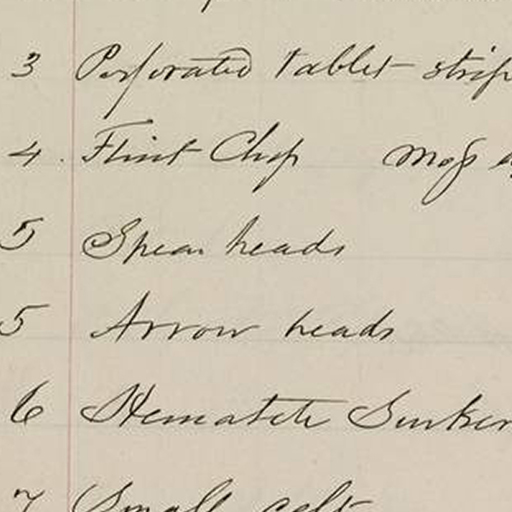 3 Perforated tablet strip
4. Flint Chip
5 Spear heads
5 Arrow heads
6 Hematite Sinker
7 Small celt